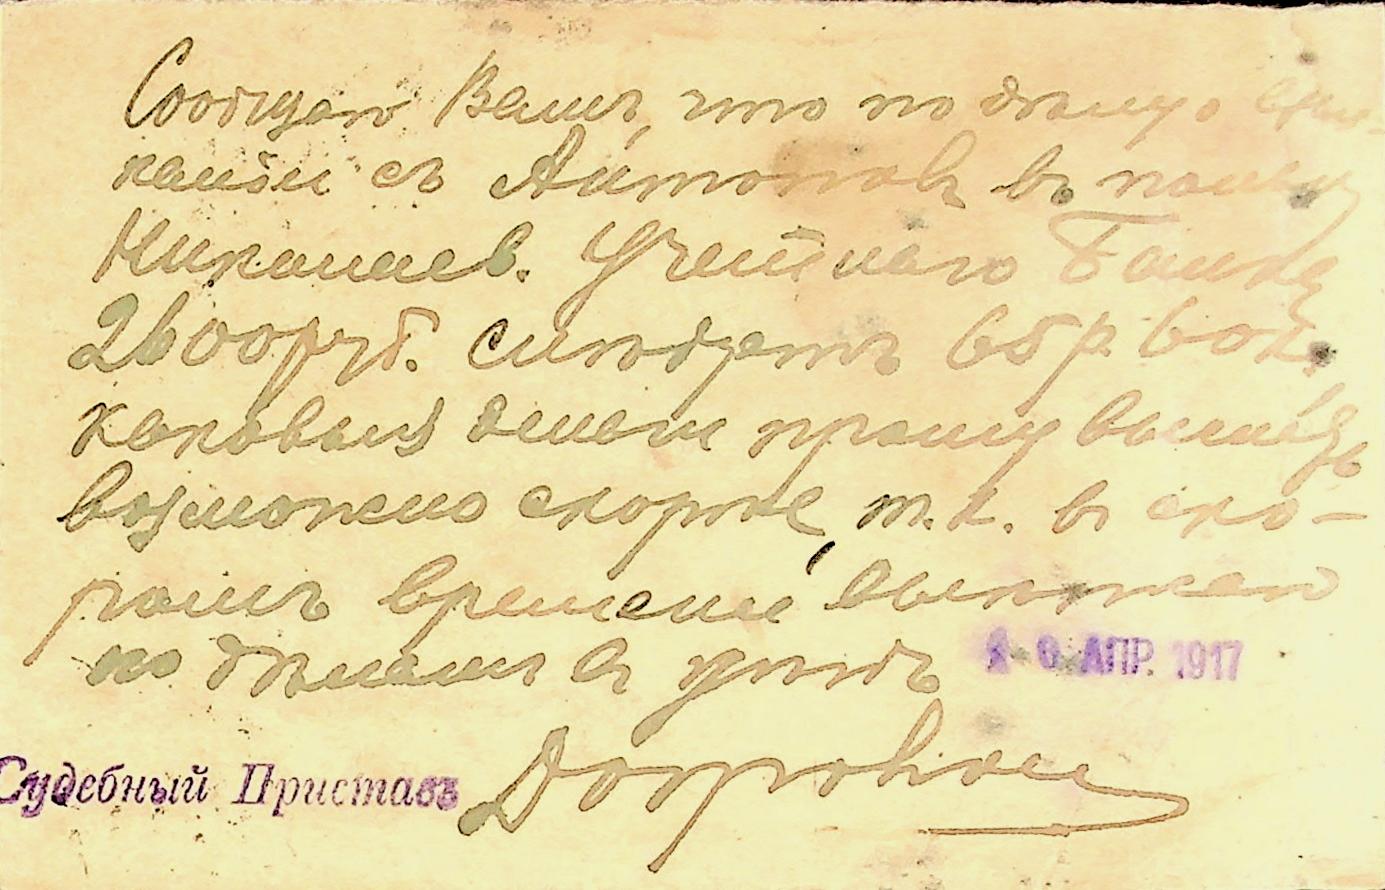 Сообщаю Вамъ, что по дѣлу о взы-
каніи съ Антонова въ пользу
Николаев. Учетнаго Банка
2600 руб. слѣдуетъ 65 р. 60 к.
каковыя деньги прошу выслать
возможно скорѣе, т.к. въ ско-
ромъ времени выѣзжаю
по дѣламъ въ уѣздъ
10 АПР. 1917
Судебный Приставъ